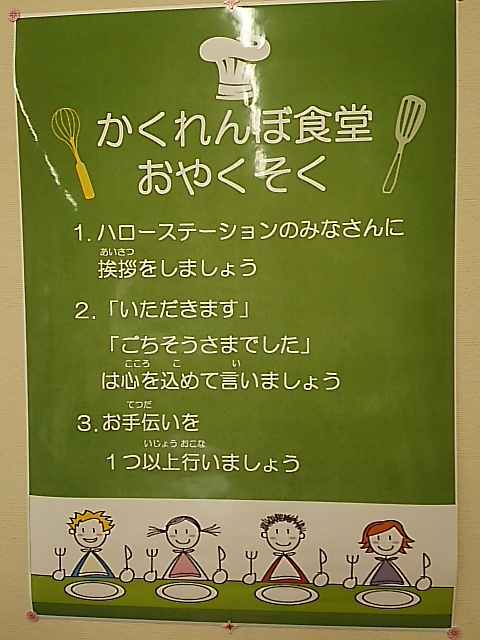 かくれんぼ食堂
おやくそく
1. ハローステーションのみなさんに
あいさつ
挨拶をしましょう
2.「いただきます」
「ごちそうさまでした」
こころ こ い
は心を込めて言いましょう
てつだ
3. お手伝いを
いじょう おこな
1つ以上行いましょう